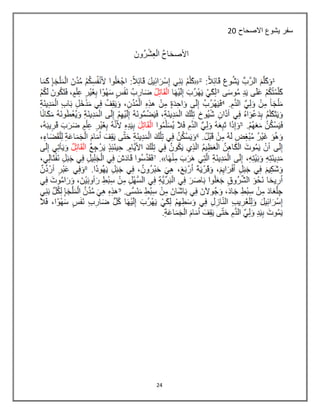 سفر يشوع الاصحاح 20
الأصحَاحُ الْعِشْرُونَ
١وَكَلَّمَ الرَّبُّ يَشُوعَ قَائِلاً: ٢«كَلِّمْ بَنِي إِسْرَائِيلَ قَائِلاً: اجْعَلُوا لأَنْفُسِكُمْ مُدُنَ الْمَلْجَإِ كَمَا
كَلَّمْتُكُمْ عَلَى يَدِ مُوسَى ٣لِكَيْ يَهْرُبَ إِلَيْهَا الْقَاتِلُ ضَارِبُ نَفْسٍ سَهْوًا بِغَيْرِ عِلْمٍ. فَتَكُونَ لَكُمْ
مَلْجَأً مِنْ وَلِيِّ الدَّمِ. ٤فَيَهْرُبُ إِلَى وَاحِدَةٍ مِنْ هذِهِ الْمُدُنِ، وَيَقِفُ فِي مَدْخَلِ بَابِ الْمَدِينَةِ
وَيَتَكَلَّمُ بِدَعْوَاهُ فِي آذَانِ شُيُوخِ تِلْكَ الْمَدِينَةِ، فَيَضُمُّونَهُ إِلَيْهِمْ إِلَى الْمَدِينَةِ وَيُعْطُونَهُ مَكَانًا
فَيَسْكُنُ مَعَهُمْ. ٥وَإِذَا تَبِعَهُ وَلِيُّ الدَّمِ فَلاَ يُسَلِّمُوا الْقَاتِلَ بِيَدِهِ لأَنَّهُ بِغَيْرِ عِلْمٍ ضَرَبَ قَرِيبَهُ،
وَهُوَ غَيْرُ مُبْغِضٍ لَهُ مِنْ قَبْلُ. ٦وَيَسْكُنُ فِي تِلْكَ الْمَدِينَةِ حَتَّى يَقِفَ أَمَامَ الْجَمَاعَةِ لِلْقَضَاءِ،
إِلَى أَنْ يَمُوتَ الْكَاهِنُ الْعَظِيمُ الَّذِي يَكُونُ فِي تِلْكَ الأَيَّامِ. حِينَئِذٍ يَرْجِعُ الْقَاتِلُ وَيَأْتِي إِلَى
مَدِينَتِهِ وَبَيْتِهِ، إِلَى الْمَدِينَةِ الَّتِي هَرَبَ مِنْهَا». ٧فَقَدَّسُوا قَادَشَ فِي الْجَلِيلِ فِي جَبَلِ نَفْتَالِي،
وَشَكِيمَ فِي جَبَلِ أَفْرَايِمَ، وَقَرْيَةَ أَرْبَعَ، هِيَ حَبْرُونُ، فِي جَبَلِ يَهُوذَا. ٨وَفِي عَبْرِ أُرْدُنِّ
أَرِيحَا نَحْوَ الشُّرُوقِ جَعَلُوا بَاصَرَ فِي الْبَرِّيَّةِ فِي السَّهْلِ مِنْ سِبْطِ رَأُوبَيْنَ، وَرَامُوتَ فِي
جِلْعَادَ مِنْ سِبْطِ جَادَ، وَجُولاَنَ فِي بَاشَانَ مِنْ سِبْطِ مَنَسَّى. ٩هذِهِ هِيَ مُدُنُ الْمَلْجَإِ لِكُلِّ بَنِي
إِسْرَائِيلَ وَلِلْغَرِيبِ النَّازِلِ فِي وَسَطِهِمْ لِكَيْ يَهْرُبَ إِلَيْهَا كُلُّ ضَارِبِ نَفْسٍ سَهْوًا، فَلاَ
يَمُوتَ بِيَدِ وَلِيِّ الدَّمِ حَتَّى يَقِفَ أَمَامَ الْجَمَاعَةِ.
24